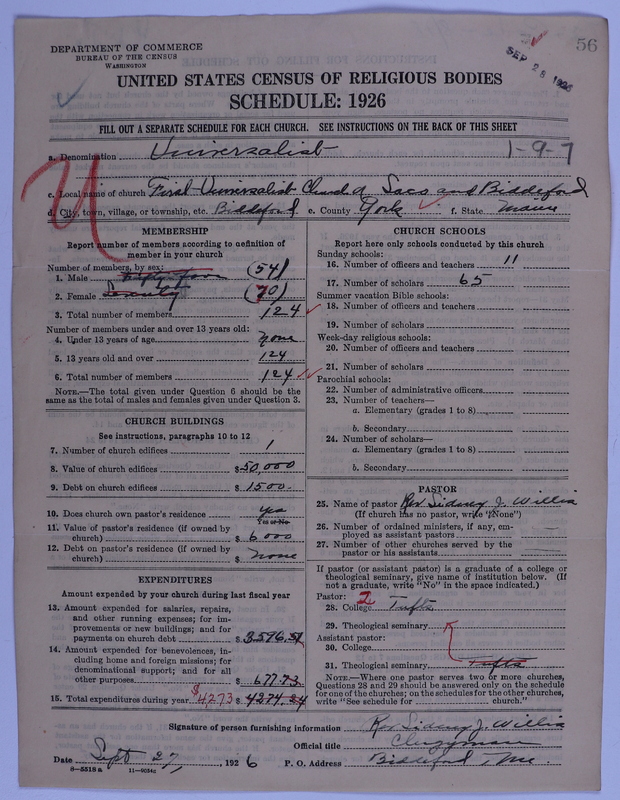 56
DEPARTMENT OF COMMERCE
BUREAU OF THE CENSUS
WASHINGTON
SEP 28 1926
UNITED STATES CENSUS OF RELIGIOUS BODIES
SCHEDULE: 1926
FILL OUT A SEPARATE SCHEDULE FOR EACH CHURCH. SEE INSTRUCTIONS ON THE BACK OF THIS SHEET
a. Denomination Universalist 1-9-7
U
c. Local name of church First Universalist Church of Saco and Biddeford
d. City, town, village, or township, etc. Biddeford e. County York f. State Maine
MEMBERSHIP
Report number of members according to definition of
member in your church
Number of members, by sex:
1. Male (54)
2. Female Seventy (70)
3. Total number of members 124
Number of members under and over 13 years old:
4. Under 13 years of age none
5. 13 years old and over 124
6. Total number of members 124
NOTE.—The total given under Question 6 should be
same as the total of males and females given under Question 3.
CHURCH BUILDINGS
See instructions, paragraphs 10 to 12
7. Number of church edifices 1
8. Value of church edifices $50,000
9. Debt on church edifices $1500.
10. Does church own pastor's residence yes
Yes or No
11. Value of pastor's residence (if owned by
church) $6000
12. Debt on pastor's residence (if owned by
church) $none
EXPENDITURES
Amount expended by your church during last fiscal year
13. Amount expended for salaries, repairs,
and other running expenses; for im-
provements or new buildings; and for
payments on church debt $3596.51
14. Amount expended for benevolences, in-
cluding home and foreign missions; for
denominational support; and for all
other purposes $677.73
15. Total expenditures during year $4273 $4274.24
CHURCH SCHOOLS
Report here only schools conducted by this church
Sunday schools:
16. Number of officers and teachers 11
17. Number of scholars 65
Summer vacation Bible schools:
18. Number of officers and teachers
19. Number of scholars
Week-day religious schools:
20. Number of officers and teachers
21. Number of scholars
Parochial schools:
22. Number of administrative officers
23. Number of teachers—
a. Elementary (grades 1 to 8)
b. Secondary
24. Number of scholars—
a. Elementary (grades 1 to 8)
b. Secondary
PASTOR
25. Name of pastor Rev Sidney J. Willis
(If church has no pastor, write "None")
26. Number of ordained ministers, if any, em-
ployed as assistant pastors
27. Number of other churches served by the
pastor or his assistants
If pastor (or assistant pastor) is a graduate of a college or
theological seminary, give name of institution below. (If
not a graduate, write "No" in the space indicated.)
Pastor: 2
28. College Tufts
29. Theological seminary
Assistant pastor:
30. College
31. Theological seminary Tufts
NOTE.—Where one pastor serves two or more churches,
Questions 28 and 29 should be answered only on the schedule
for one of the churches; on the schedules for the other churches,
write "See schedule for church."
Signature of person furnishing information Rev Sidney J. Willis
Official title Clergyman
Date Sept 27, 1926 P. O. Address Biddeford, Me.
8-5518a 11-9034c